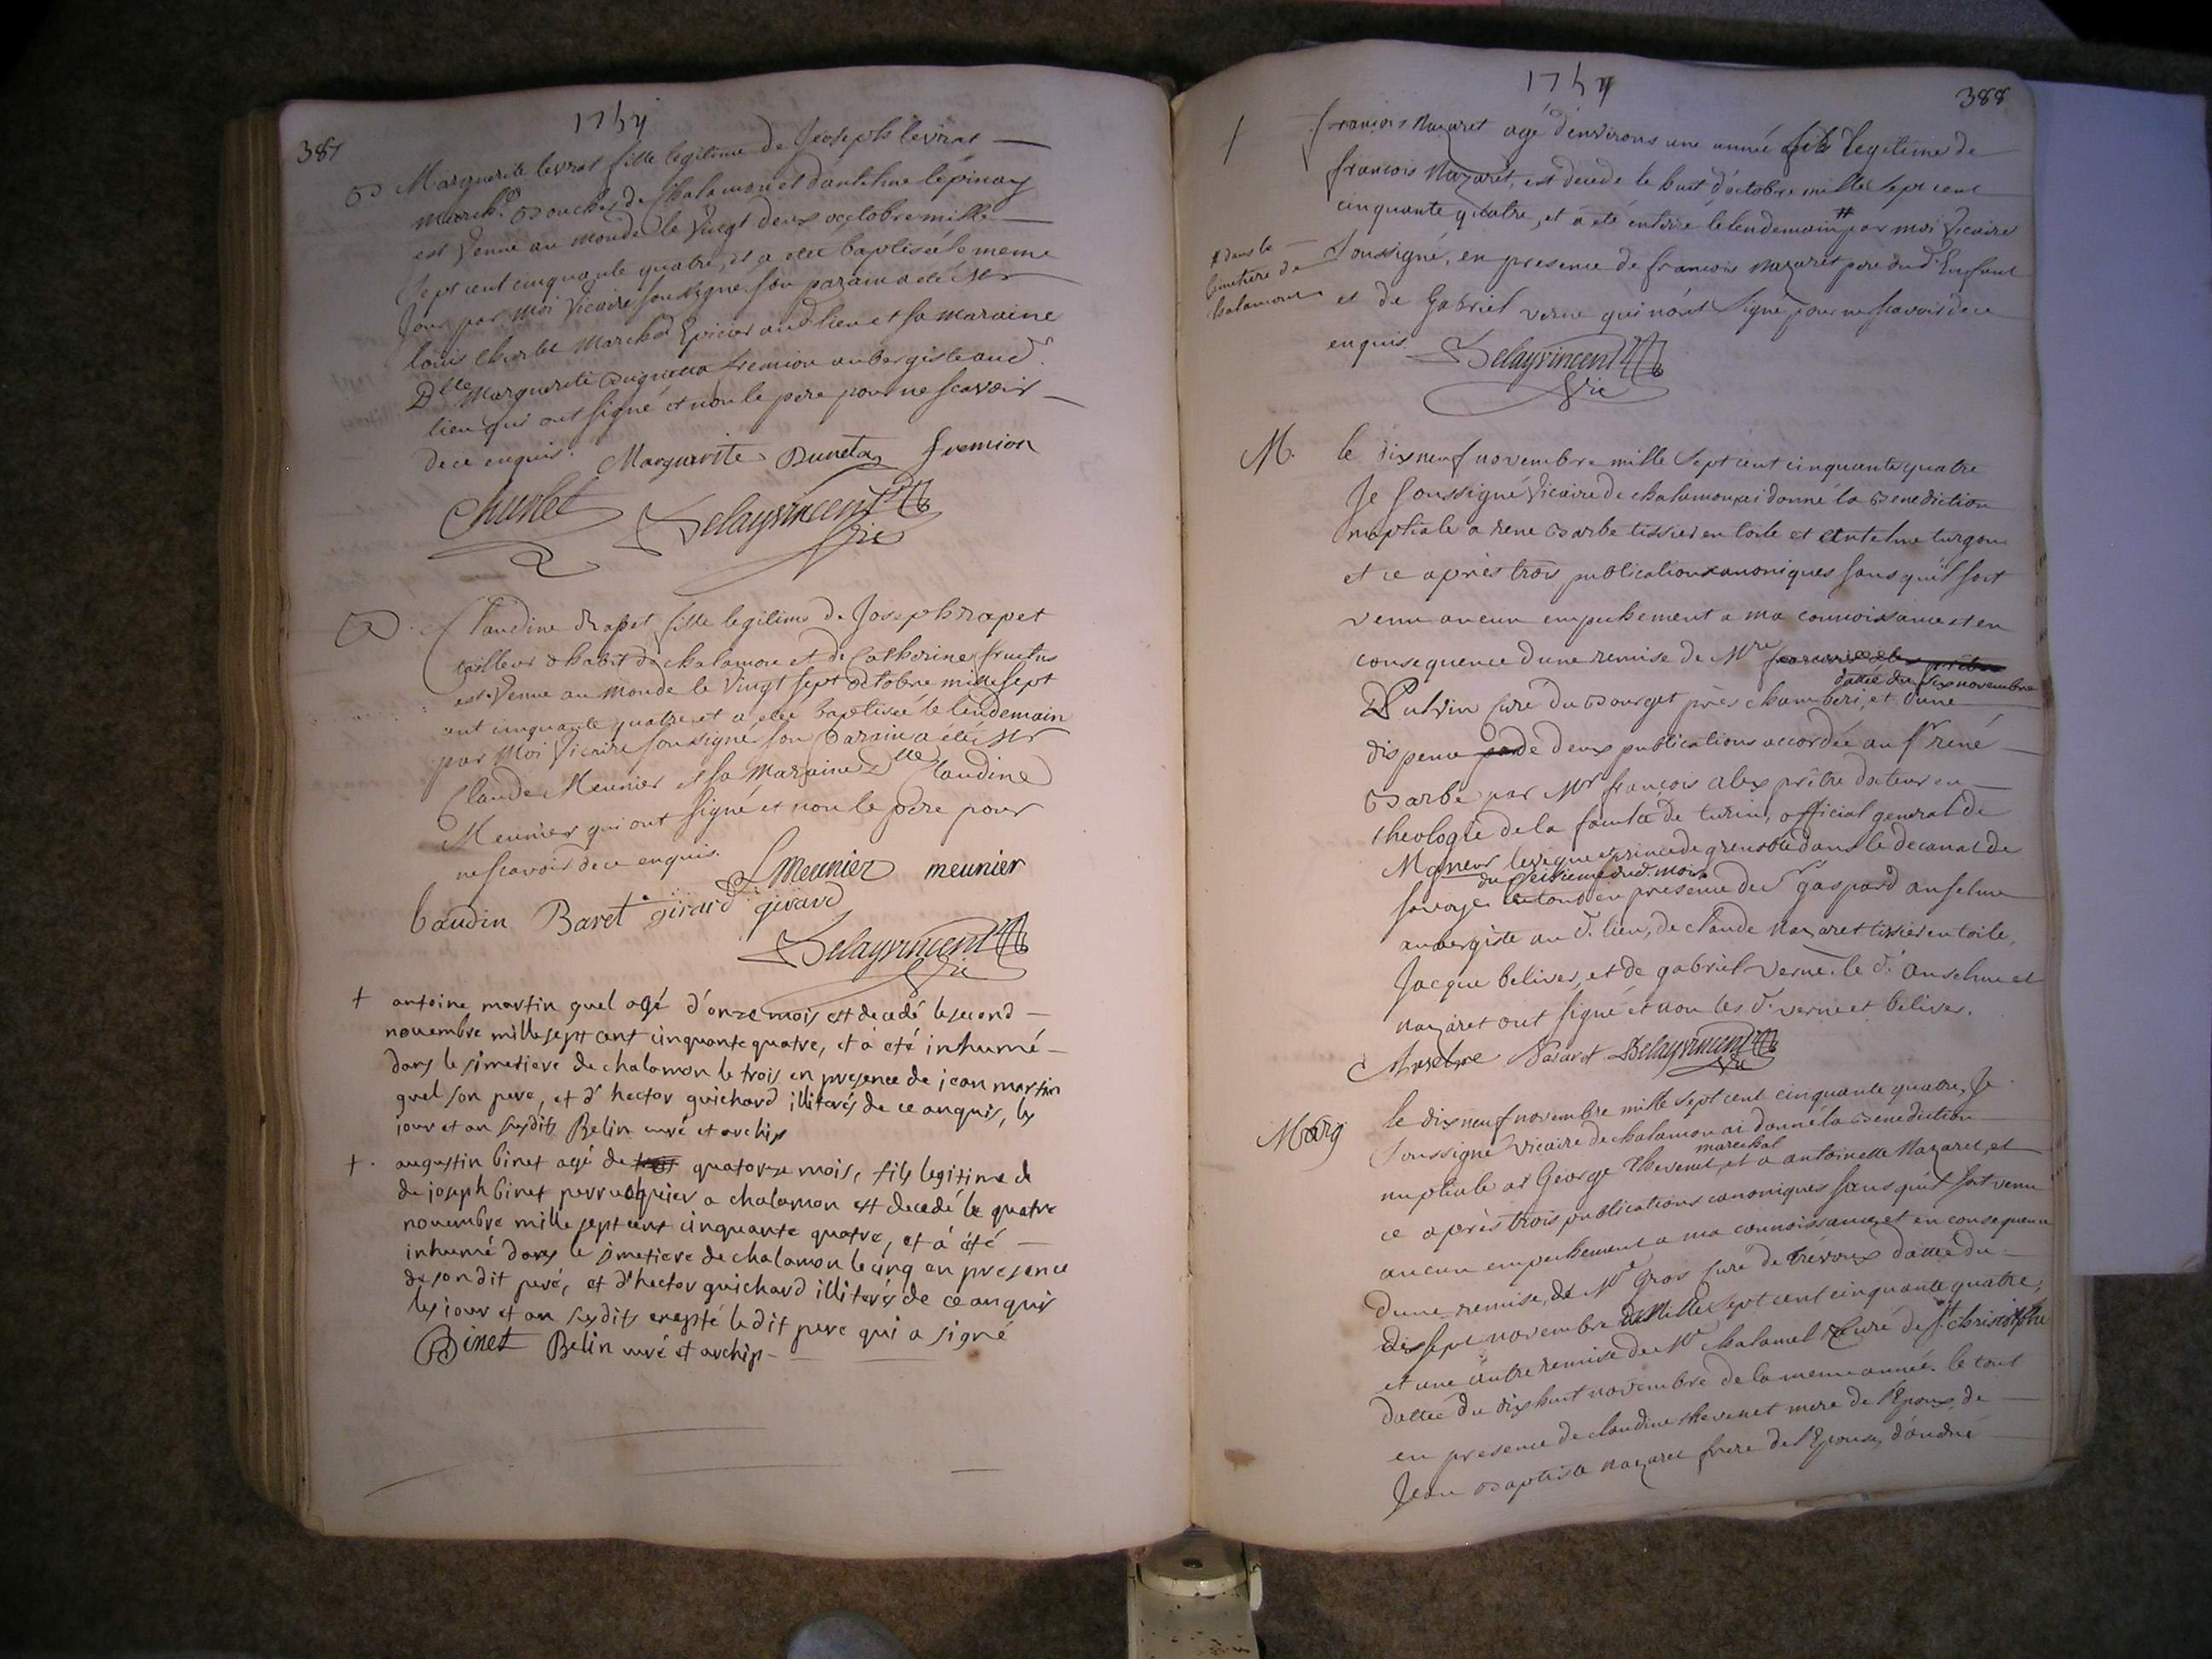 387
1754
B Marguerite levrat fille legitime de Joseph levrat
march.d Boucher de chalamon et d'antelme lépinay
est venue au monde le vingt deux octobre mille
sept cent cinquante quatre, et a eté baptisée le meme
Jour par moi vicaire soussigné son parain a été Mr
louis March.d Epicier aud lieu et sa maraine
Dlle Marguerite fremion aubergiste aud.
lieu qui ont signé et non le pere pour ne scavoir
de ce enquis. Marguerite Duneta fremion
Delayvincent
Vic
B. Claudine drapet fille legitime de Joseph drapet
tailleur d habit de chalamon et de Catherine fructus
est venue au monde le vingt sept octobre mille sept
cent cinquante quatre et a eté baptisée le lendemain
par Moi vicaire soussigné son parain a été Mr
Claude Meunier et sa maraine dlle Claudine
Meunier qui ont signé et non le pere pour
ne scavoir de ce enquis.
Meunier meunier
baudin Baret girard girard
Delayvincent
Vic
+ antoine martin guel agé d'onze mois est decedé le second
novembre mille sept cent cinquante quatre, et a été inhumé
dans le simetiere de chalamon le trois en presence de jean martin
guel son pere, et d' hector guichard illiterés de ce anquis, les
jour et an susdits Belin curé et archip
+. augustin binet agé de quatorze mois, fils legitime de
de joseph binet perruquier a chalamon est decedé le quatre
novembre mille sept cent cinquante quatre, et a été
inhumé dans le simetiere de chalamon le cinq en presence
de son dit pere, et d'hector guichard illiterés de ce anquis
les jour et an susdits exepté le dit pere qui a signé
Binet Belin curé et archip
1754
388
+ francois Nazaret agé d'environs une année fils legitime de
francois Nazaret, est decedé le huit d'octobre mille sept cent
cinquante quatre, et a été enterré le lendemain # par moi vicaire
# dans le
cimetiere de
chalamont
soussigné, en presence de francois Nazaret pere dud Enfant
et de Gabriel verne qui n'ont signé pour ne scavoir de ce
enquis. Delayvincent
Vic
M. le dix neuf novembre mille sept cent cinquante quatre
Je soussigné vicaire de chalamon ai donné la Benediction
nuptiale a rene Barbe tissier en toile et antelme turgon
et ce après trois publications canoniques sans qu'il soit
venu aucun empechement a ma connoissance et en
consequence d'une remise de Mre
dattée du six novembre
Dulvin curé du Bourget près chamberi, et d'une
dispense de deux publications accordée au sr réné
Barbe par Mr françois alex prêtre docteur en
theologie de la faculté de turin, official general de
Mgneur levêque et prince de grenoble dans le decanat de
du seizieme dud mois
savoye le tout en presence de sr gaspard anselme
aubergiste au d. lieu, de claude Nazaret tissier en toile,
Jacque beliver, et de gabriel verne. le d. anselme et
nazaret ont signé et non les d. verne et beliver.
Anselme Nazaret Delayvincent
Vic
Marg le dix neuf novembre mille sept cent cinquante quatre, Je
soussigné vicaire de chalamon ai donné la Benediction
marechal
nuptiale a George thevenet, et a antoinette Nazaret, et
ce après trois publications canoniques sans qu'il soit venu
aucun empechement a ma connoissance, et en consequence
d'une remise, de Mre Gros curé de trévoux dattée du
dix sept novembre mille sept cent cinquante quatre,
et une autre remise de Mre chalamel curé de st christophe
dattée du dix huit novembre de la meme année. le tout
en presence de claudine thevenet mere de l'Epoux, de
Jean Baptiste Nazaret frere de l'Epouse, d'andré